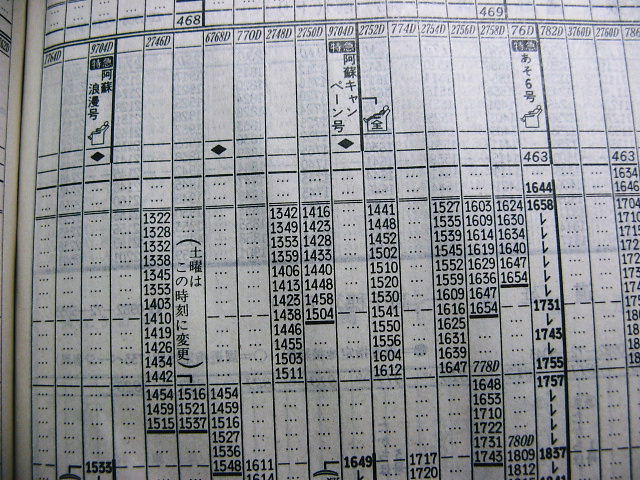 468
469
1764D 9704D 2746D 6768D 770D 2748D 2750D 9704D 2752D 774D 2754D 2756D 2758D 76D 782D 3760D 2760D
特急 阿蘇浪漫号
特急 阿蘇キャンペーン号
全
特急 あそ6号
463 463
1634
1644
1322 1342 1416 1441 1527 1603 1624 1658
1328 1349 1423 1448 1535 1609 1630
1332 1353 1428 1452 1539 1614 1634
1338 1359 1433 1502 1545 1619 1640
1345 1406 1440 1510 1552 1629 1647
1353 1413 1448 1520 1559 1636 1654
1403 1423 1458 1530 1609 1647
1410 1438 1504 1541 1616 1654 1731
1419 1446 1550 1625
1426 1455 1556 1631 1743
1434 1503 1604 1639
1442 1511 1612 1647 778D 1755
(土曜はこの時刻に変更)
1454 1516 1454 1648 1757
1459 1521 1459 1653
1515 1537 1516 1710
1527 1722
1536 1731 780D
1533 1548 1611 1649 1717 1743 1809 1837
1720 1812